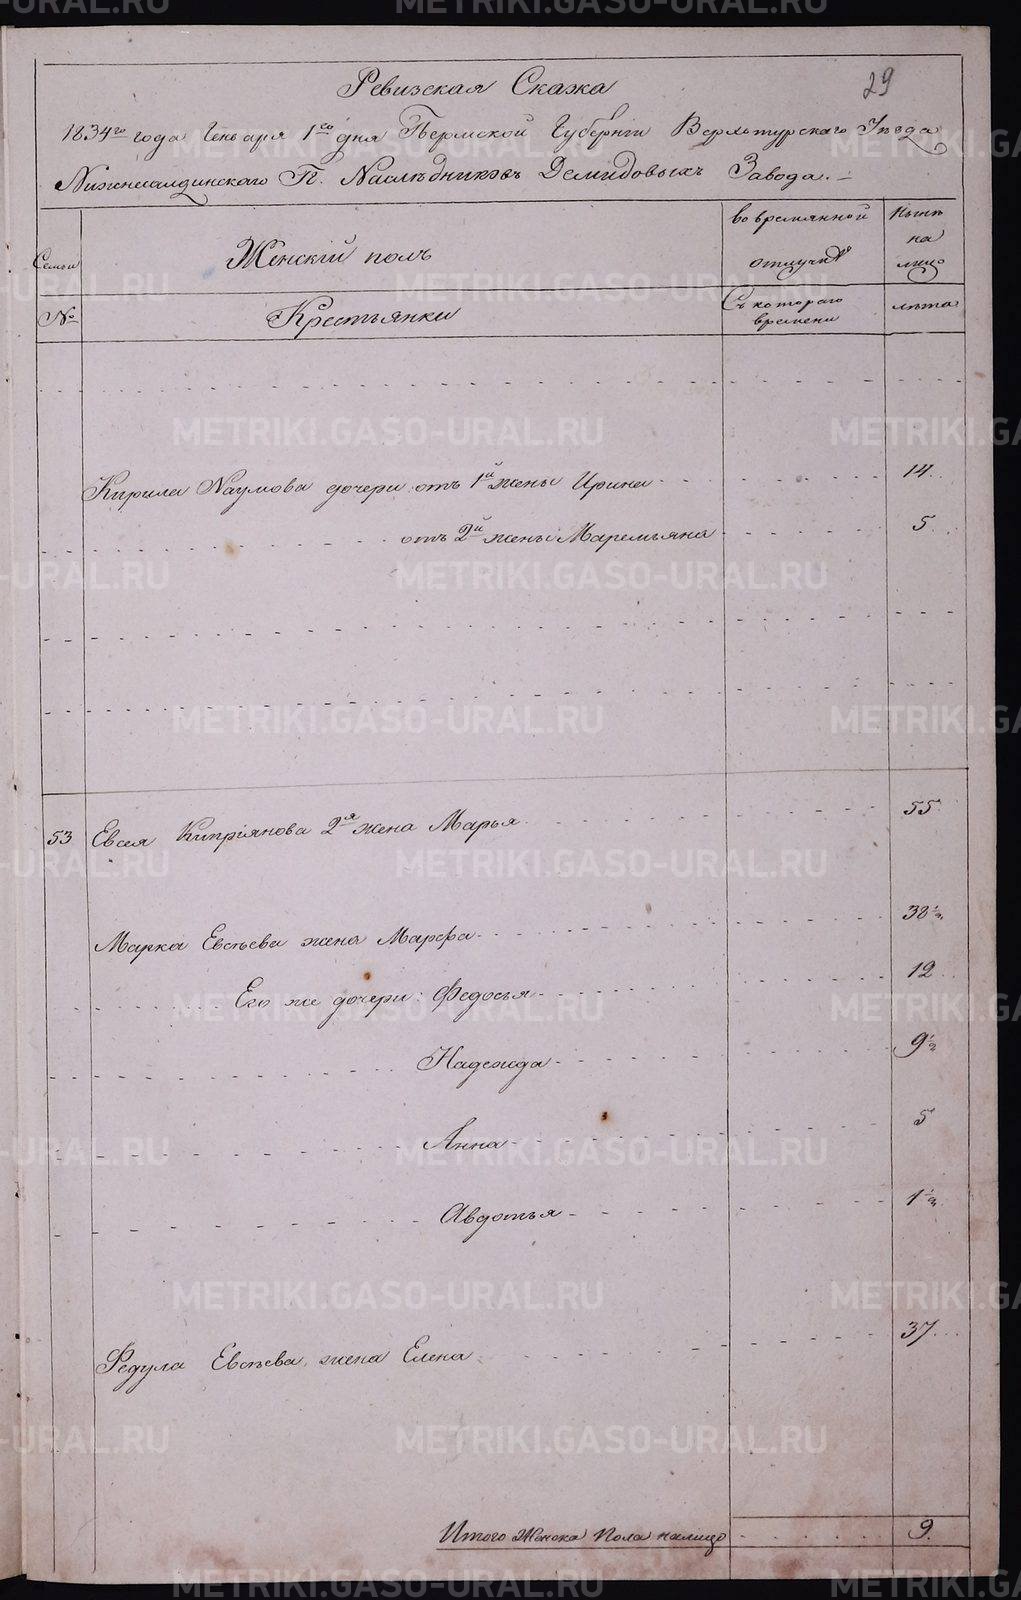 29
Ревизская Сказка
1834го года Генваря 1го дня Пермской Губернiи Верхотурскаго Уезда
Нижнесалдинскаго Г. Г. Наслѣдниковъ Демидовыхъ Завода.
Семьи
Женскiй полъ
во временной отлучкѣ
Нынѣ на лицо
№
Крестьянки
Съ котораго времени
лѣта
Кирила Наумова дочери отъ 1й жены Ирина 14
отъ 2й жены Маремьяна 5
53 Евсея Кипрiянова 2я жена Марья 55
Марка Евсѣева жена Марфа 38 1/2
Его же дочери: Федосья 12
Надежда 9 1/2
Анна 5
Авдотья 1 1/2
Федула Евсѣева жена Елена 37
Итого Женска Пола налицо 9.
METRIKI.GASO-URAL.RU